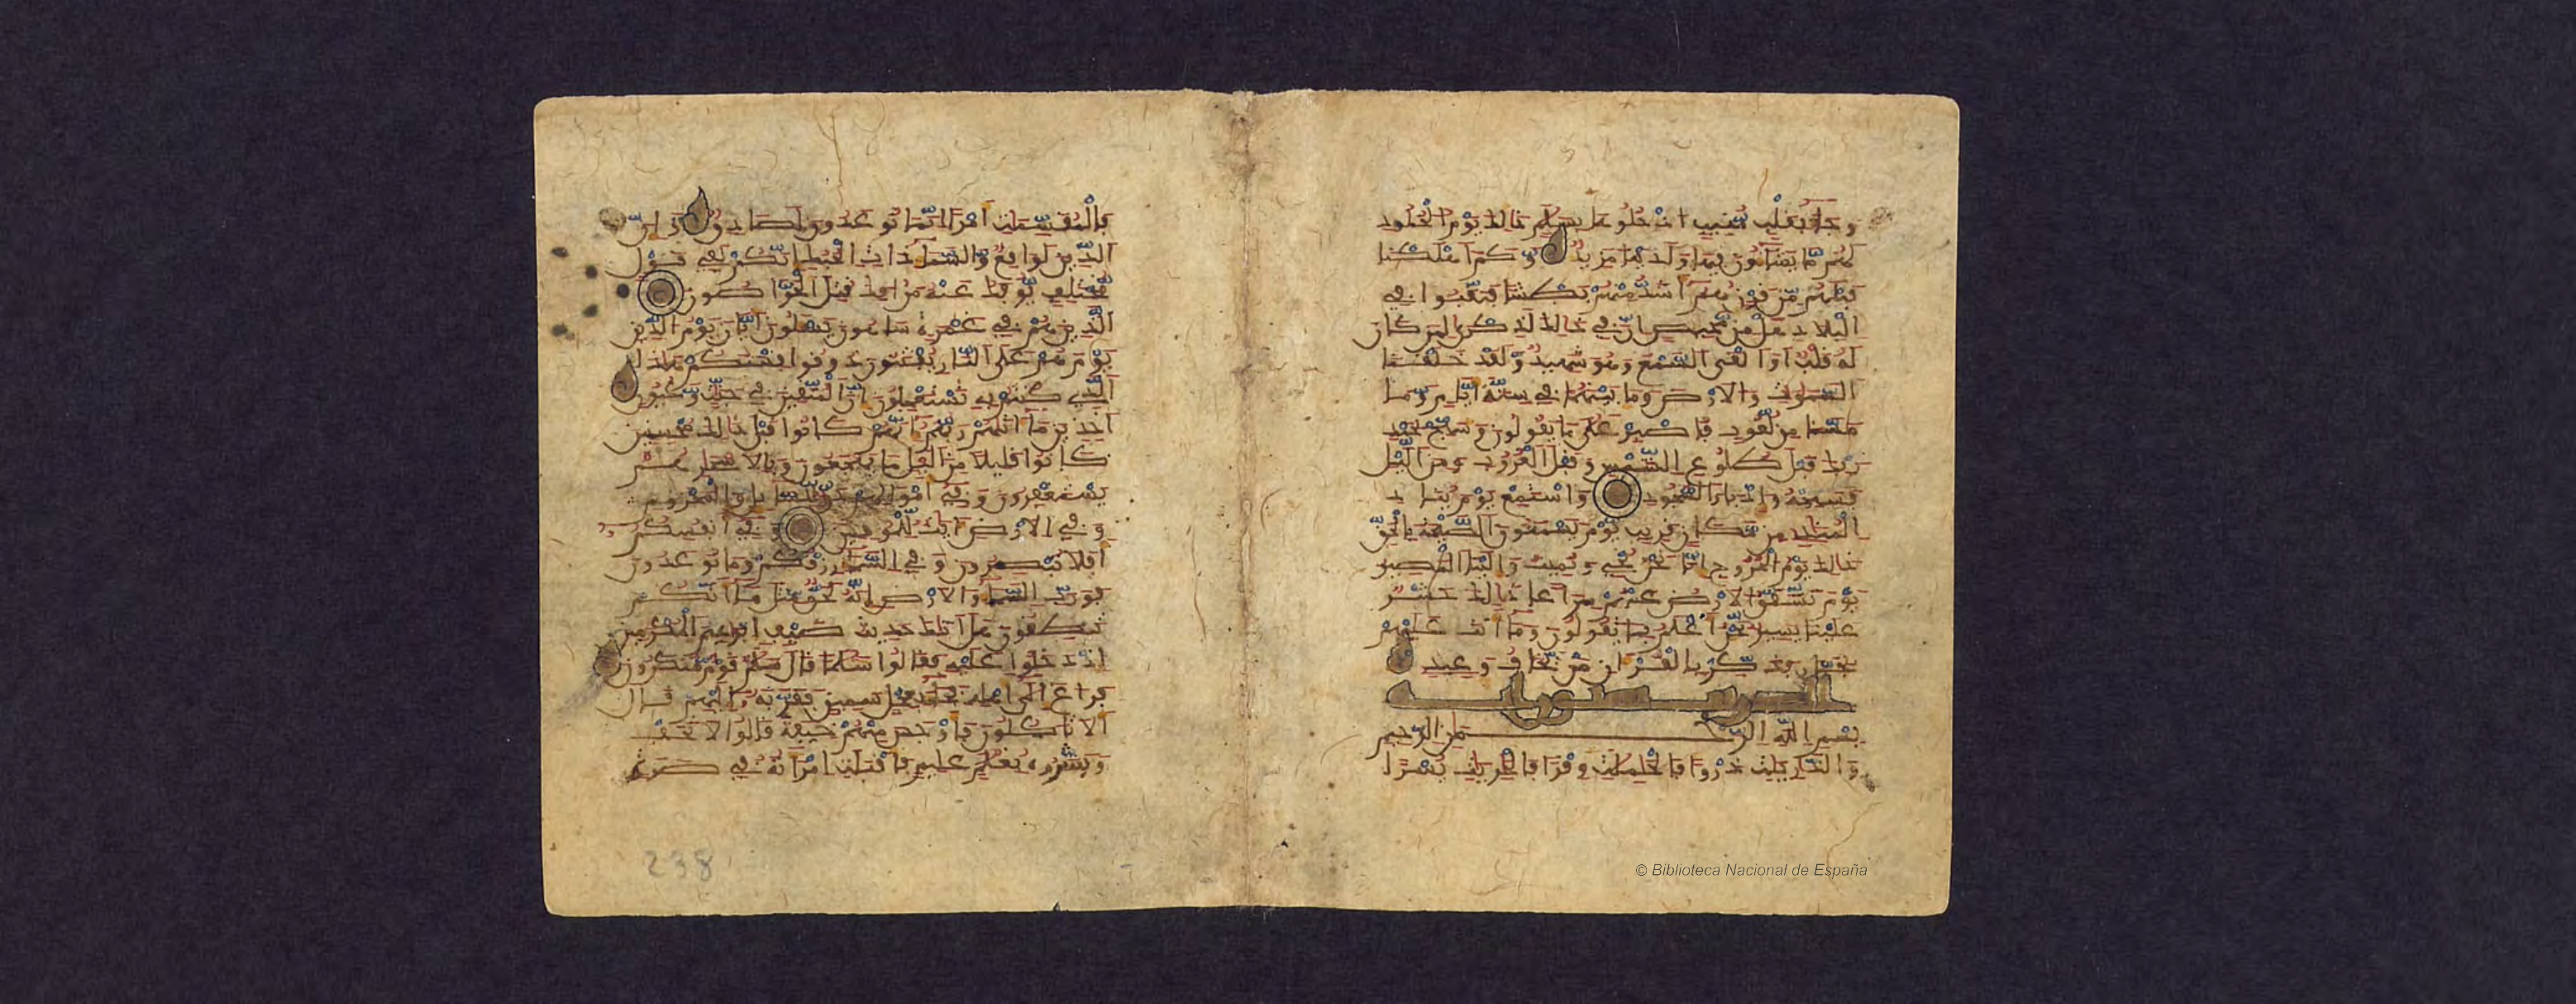 وجاء بقلب منيب ادخلوها بسلم ذلك يوم الخلود
لهم ما يشاءون فيها ولدينا مزيد وكم اهلكنا
قبلهم من قرن هم اشد منهم بطشا فنقبوا في
البلاد هل من محيص ان في ذلك لذكرى لمن كان
له قلب او القى السمع وهو شهيد ولقد خلقنا
السموت والارض وما بينهما في ستة ايام وما
مسنا من لغوب فاصبر على ما يقولون وسبح بحمد
ربك قبل طلوع الشمس وقبل الغروب ومن اليل
فسبحه وادبار السجود واستمع يوم يناد
المناد من مكان قريب يوم يسمعون الصيحة بالحق
ذلك يوم الخروج انا نحن نحي ونميت والينا المصير
يوم تشقق الارض عنهم سراعا ذلك حشر
علينا يسير نحن اعلم بما يقولون وما انت عليهم
بجبار فذكر بالقران من يخاف وعيد
بسم الله الرحمن الرحيم
والذريت ذروا فالحملت وقرا فالجريت يسرا
فالمقسمت امرا انما توعدون لصادق وان
الدين لواقع والسماء ذات الحبك انكم لفي قول
مختلف يوفك عنه من افك قتل الخراصون
الذين هم في غمرة ساهون يسلون ايان يوم الدين
يوم هم على النار يفتنون ذوقوا فتنتكم هذا
الذي كنتم به تستعجلون ان المتقين في جنت وعيون
اخذين ما اتيهم ربهم انهم كانوا قبل ذلك محسنين
كانوا قليلا من اليل ما يهجعون وبالاسحار هم
يستغفرون وفي امولهم حق للسائل والمحروم
وفي الارض ايت للموقنين وفي انفسكم
افلا تبصرون وفي السماء رزقكم وما توعدون
فورب السماء والارض انه لحق مثل ما انكم
تنطقون هل اتيك حديث ضيف ابرهيم المكرمين
اذ دخلوا عليه فقالوا سلما قال سلم قوم منكرون
فراغ الى اهله فجاء بعجل سمين فقربه اليهم قال
الا تاكلون فاوجس منهم خيفة قالوا لا تخف
وبشروه بغلم عليم فاقبلت امراته في صرة
238
© Biblioteca Nacional de España